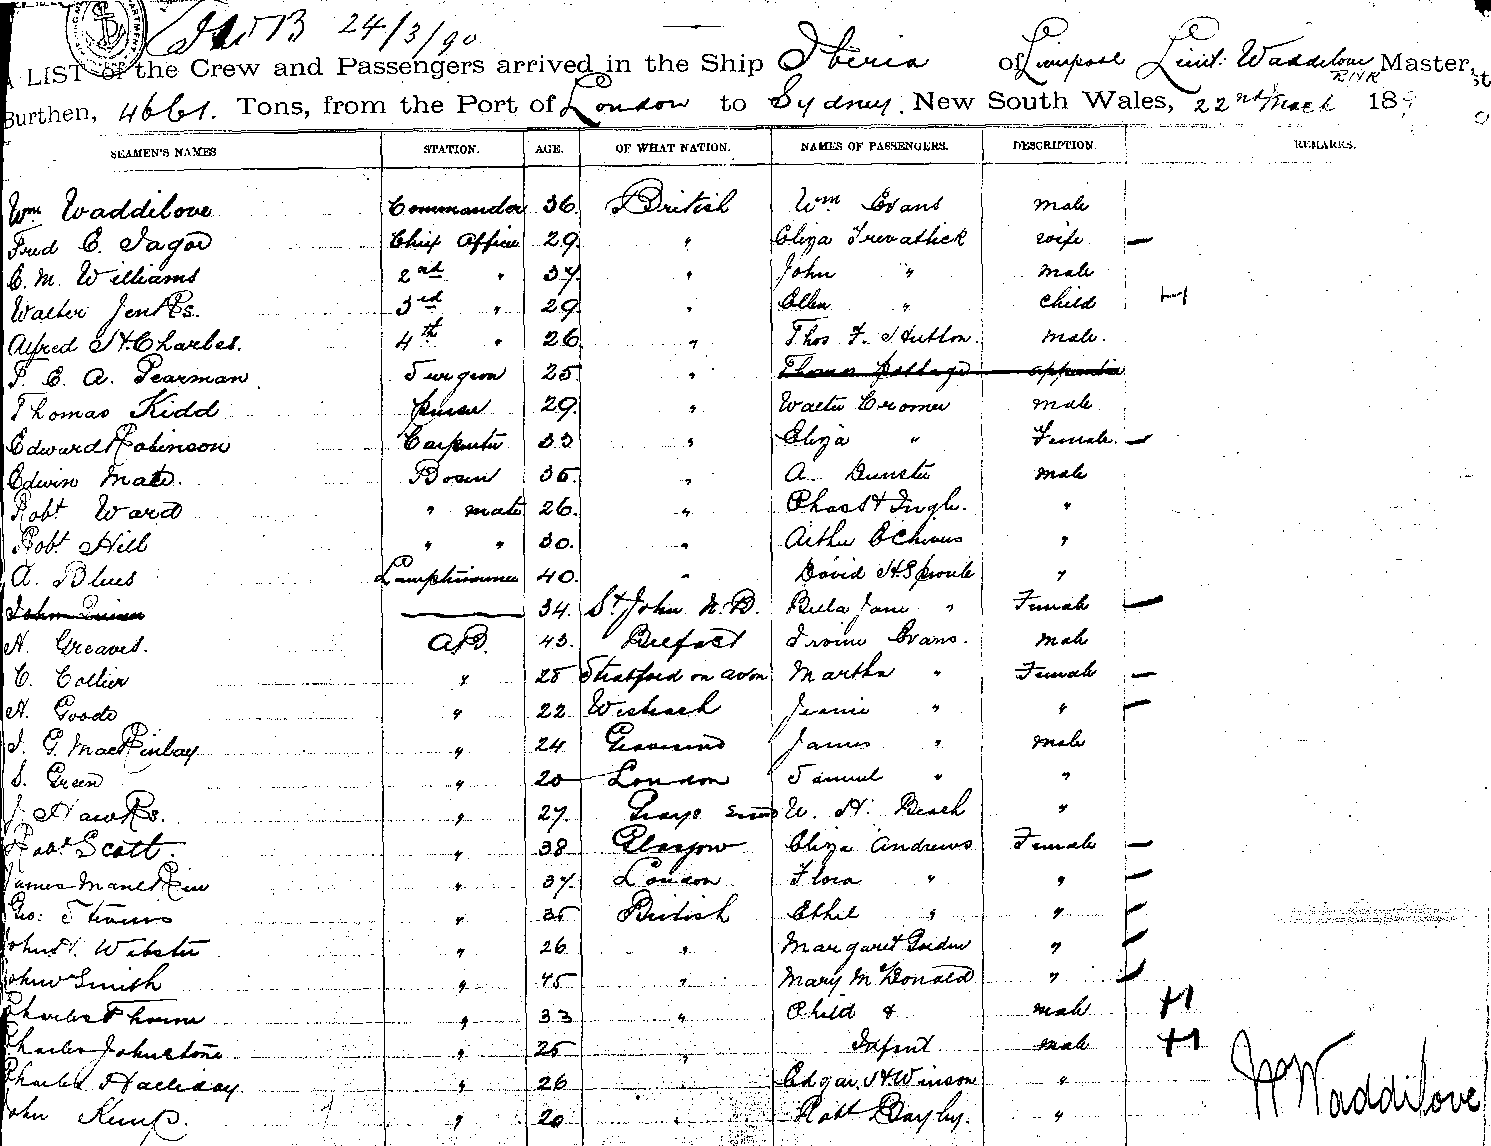 24/3/90
A LIST of the Crew and Passengers arrived in the Ship Iberia of Liverpool Lieut: Waddilove RNR Master,
Burthen, 4661. Tons, from the Port of London to Sydney. New South Wales, 22nd March 189
SEAMEN'S NAMES STATION. AGE. OF WHAT NATION. NAMES OF PASSENGERS. DESCRIPTION. REMARKS.
Wm Waddilove Commander 36 British Wm Evans male
Fred C. Chief Officer 29 " Eliza Trevathick wife
C. M. Williams 2nd " 37 " John " male
Walter Jenks. 3rd " 29 " Ellen " child
Alfred St. Charles. 4th " 26 " Thos F. Hutton. male.
P. C. A. Pearman Surgeon 25 "
Thomas Kidd purser 29 " Walter Cromer male
Edward Robinson Carpenter 33 " Eliza " Female.
Edwin Mate. Bosun 35 " A. Dunster male
Robt Ward " mate 26. " Chas H Ingle. "
Robt Hill " " 30. " Arthur "
A. Blues Lamptrimmer 40. " David H Sproule "
John 34. St John N.B. Bella Jane " Female
H. Greaves. AB. 43. Belfast Irvine Evans. male
C. Collier " 25 Stratford on avon Martha " Female
H. Goode " 22 Wisbeach Jennie " "
J. G. MacKinlay " 24 Gravesend James " male
S. Green " 20 London Samuel " "
J. Hawks. " 27. Grays W. H. Beach "
Robt Scott. " 38 Glasgow Eliza Andrews Female
James " 37. London Flora " "
Geo: Stevens " 35 British Ethel " "
John H. Webster " 26 " Margaret Gordon "
John Smith " 45 " Mary McDonald "
Charles Thorne " 33 " Child & male
Charles Johnstone " 25 " Infant male
Charles Halliday " 26 Edgar H Winson "
John Kemp. " 20 Robt Bayley. "
W Waddilove